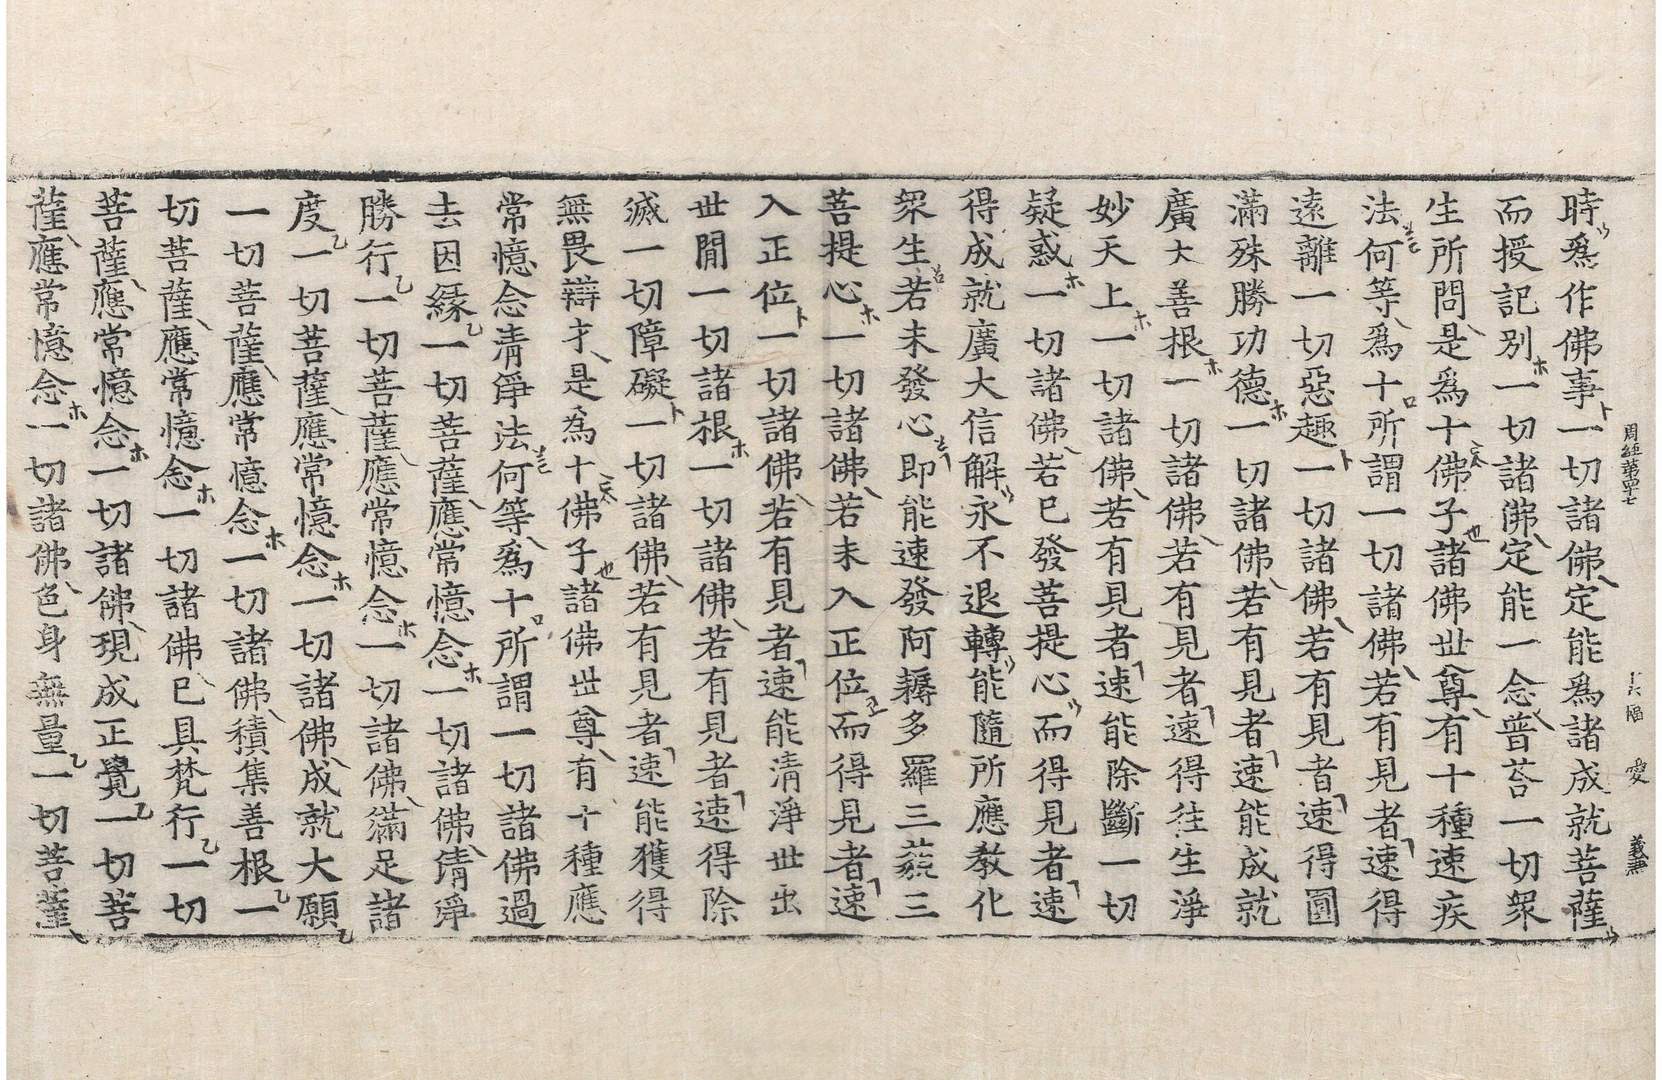 周經第四十七 十六幅 愛 義兼
時爲作佛事一切諸佛定能爲諸成就菩薩
而授記別一切諸佛定能一念普荅一切衆
生所問是爲十佛子諸佛世尊有十種速疾
法何等爲十所謂一切諸佛若有見者速得
遠離一切惡趣一切諸佛若有見者速得圓
滿殊勝功德一切諸佛若有見者速能成就
廣大善根一切諸佛若有見者速得往生淨
妙天上一切諸佛若有見者速能除斷一切
疑惑一切諸佛若已發菩提心而得見者速
得成就廣大信解永不退轉能隨所應教化
衆生若未發心即能速發阿耨多羅三藐三
菩提心一切諸佛若未入正位而得見者速
入正位一切諸佛若有見者速能清淨世出
世閒一切諸根一切諸佛若有見者速得除
滅一切障礙一切諸佛若有見者速能獲得
無畏辯才是爲十佛子諸佛世尊有十種應
常憶念清淨法何等爲十所謂一切諸佛過
去因緣一切菩薩應常憶念一切諸佛清淨
勝行一切菩薩應常憶念一切諸佛滿足諸
度一切菩薩應常憶念一切諸佛成就大願
一切菩薩應常憶念一切諸佛積集善根一
切菩薩應常憶念一切諸佛已具梵行一切
菩薩應常憶念一切諸佛現成正覺一切菩
薩應常憶念一切諸佛色身無量一切菩薩